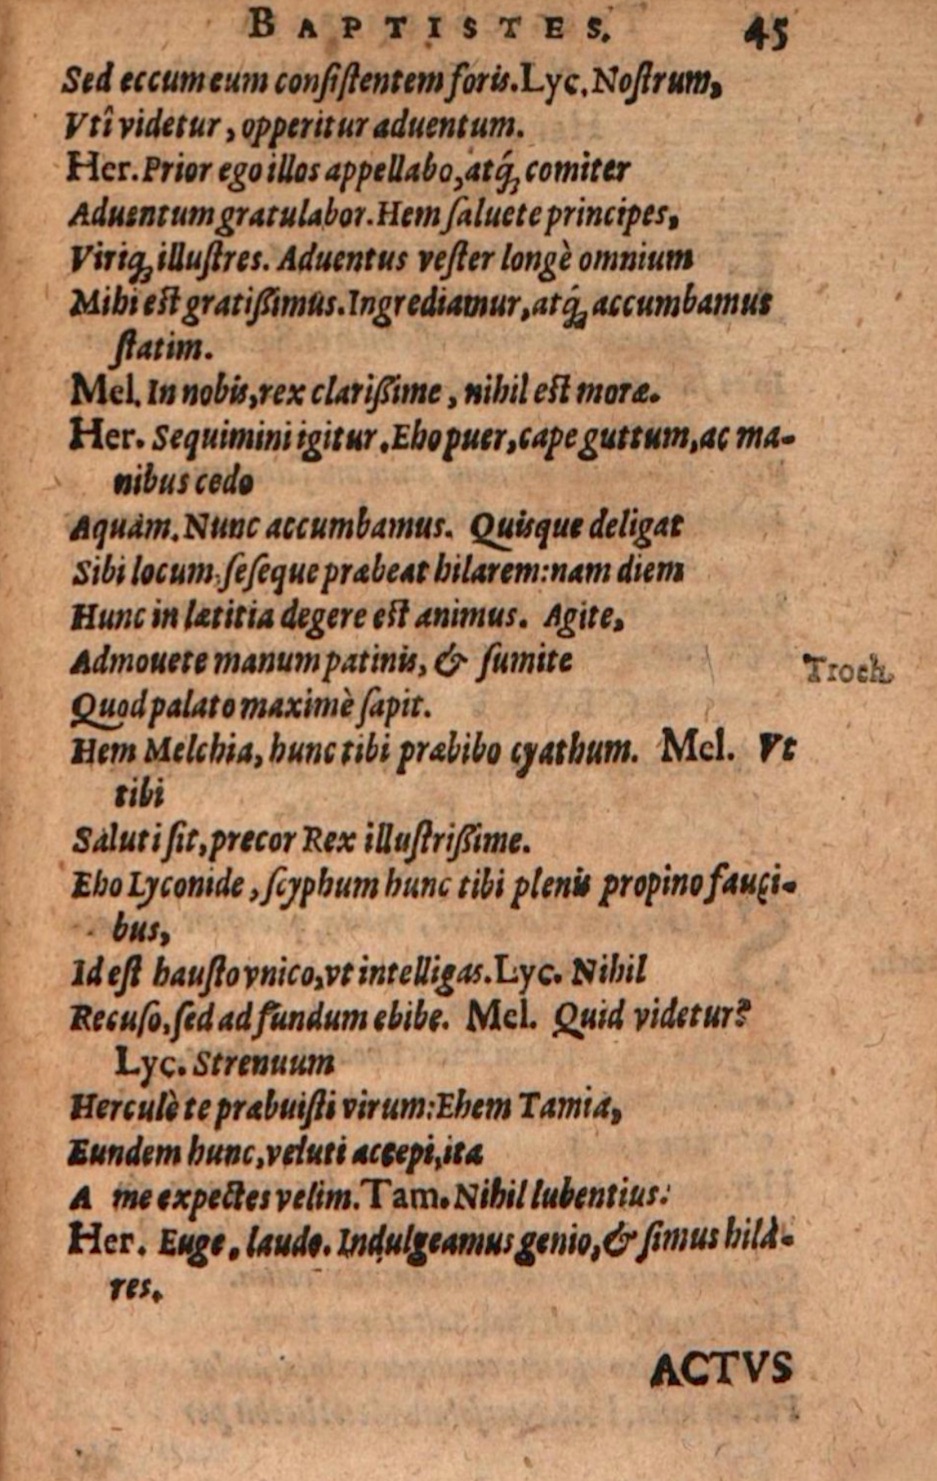 BAPTISTES. 45
Sed eccum eum conſiſtentem foris. Lyc. Noſtrum,
Vtî videtur, opperitur aduentum.
Her. Prior ego illos appellabo, atq́; comiter
Aduentum gratulabor. Hem ſaluete principes,
Viriq; illuſtres. Aduentus veſter longè omnium
Mihi eſt gratißimus. Ingrediamur, atq́; accumbamus
ſtatim.
Mel. In nobis, rex clarißime, nihil eſt moræ.
Her. Sequimini igitur. Eho puer, cape guttum, ac ma-
nibus cedo
Aquam. Nunc accumbamus. Quisque deligat
Sibi locum, ſeſeque præbeat hilarem: nam diem
Hunc in lætitia degere eſt animus. Agite,
Admouete manum patinis, & ſumite
Troch.
Quod palato maximè ſapit.
Hem Melchia, hunc tibi præbibo cyathum. Mel. Vt
tibi
Saluti ſit, precor Rex illuſtrißime.
Eho Lyconide, ſcyphum hunc tibi plenis propino fauci-
bus,
Id eſt hauſto vnico, vt intelligas. Lyc. Nihil
Recuſo, ſed ad fundum ebibe. Mel. Quid videtur?
Lyc. Strenuum
Herculè te præbuiſti virum: Ehem Tamia,
Eundem hunc, veluti accepi, ita
A me expectes velim. Tam. Nihil lubentius.
Her. Euge, laudo. Indulgeamus genio, & ſimus hila-
res.
ACTVS